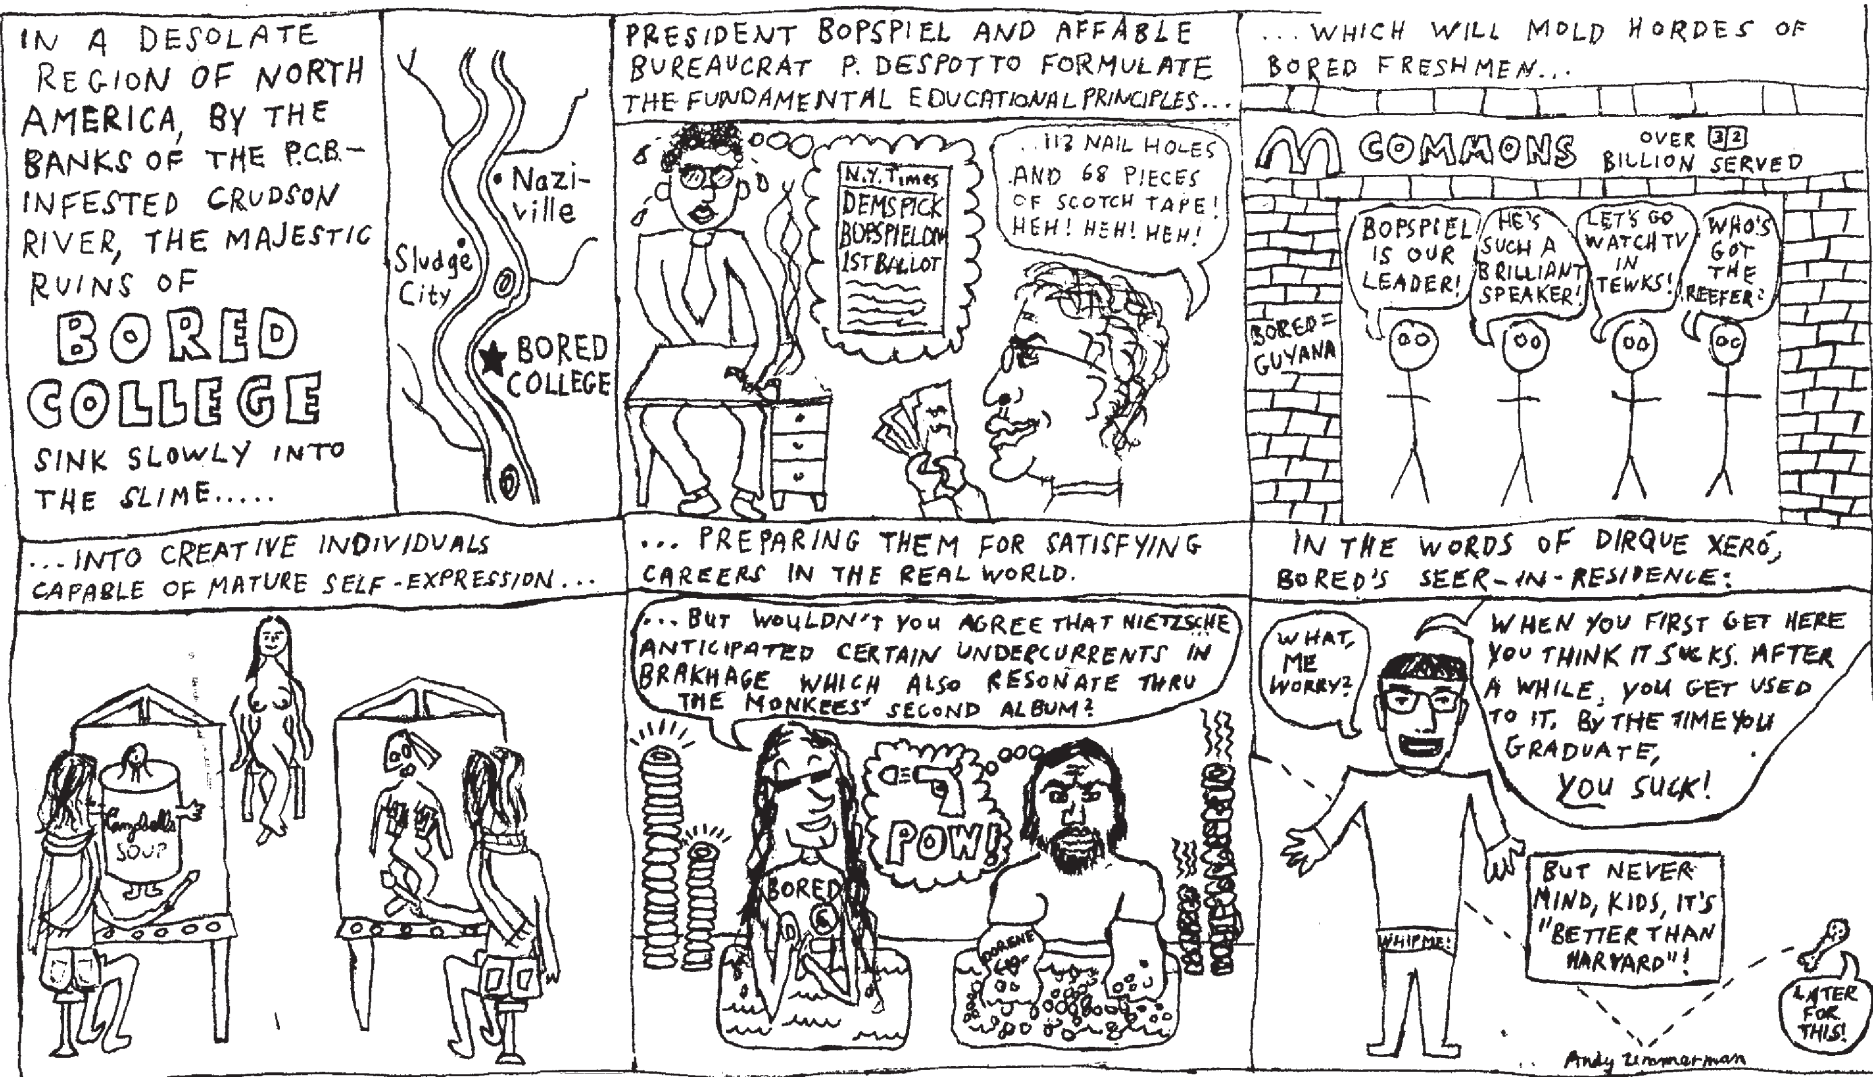 IN A DESOLATE
REGION OF NORTH
AMERICA, BY THE
BANKS OF THE P.C.B.-
INFESTED CRUDSON
RIVER, THE MAJESTIC
RUINS OF
BORED
COLLEGE
SINK SLOWLY INTO
THE SLIME.....
Nazi-
ville
Sludge
City
BORED
COLLEGE
PRESIDENT BOPSPIEL AND AFFABLE
BUREAUCRAT P. DESPOTTO FORMULATE
THE FUNDAMENTAL EDUCATIONAL PRINCIPLES...
N.Y. Times
DEMS PICK
BOPSPIEL ON
1ST BALLOT
...113 NAIL HOLES
AND 68 PIECES
OF SCOTCH TAPE!
HEH! HEH! HEH!
...WHICH WILL MOLD HORDES OF
BORED FRESHMEN...
M COMMONS
OVER 32
BILLION SERVED
BORED=
GUYANA
BOPSPIEL
IS OUR
LEADER!
HE'S
SUCH A
BRILLIANT
SPEAKER!
LET'S GO
WATCH TV
IN
TEWKS!
WHO'S
GOT
THE
REEFER?
...INTO CREATIVE INDIVIDUALS
CAPABLE OF MATURE SELF-EXPRESSION...
Campbells
SOUP
... PREPARING THEM FOR SATISFYING
CAREERS IN THE REAL WORLD.
... BUT WOULDN'T YOU AGREE THAT NIETZSCHE
ANTICIPATED CERTAIN UNDERCURRENTS IN
BRAKHAGE WHICH ALSO RESONATE THRU
THE MONKEES' SECOND ALBUM?
POW!
BORED
IN THE WORDS OF DIRQUE XERÓ,
BORED'S SEER-IN-RESIDENCE:
WHAT,
ME
WORRY?
WHEN YOU FIRST GET HERE
YOU THINK IT SUCKS. AFTER
A WHILE, YOU GET USED
TO IT. BY THE TIME YOU
GRADUATE,
YOU SUCK!
WHIP ME!
BUT NEVER
MIND, KIDS, IT'S
"BETTER THAN
HARVARD"!
LATER
FOR
THIS!
Andy Zimmerman